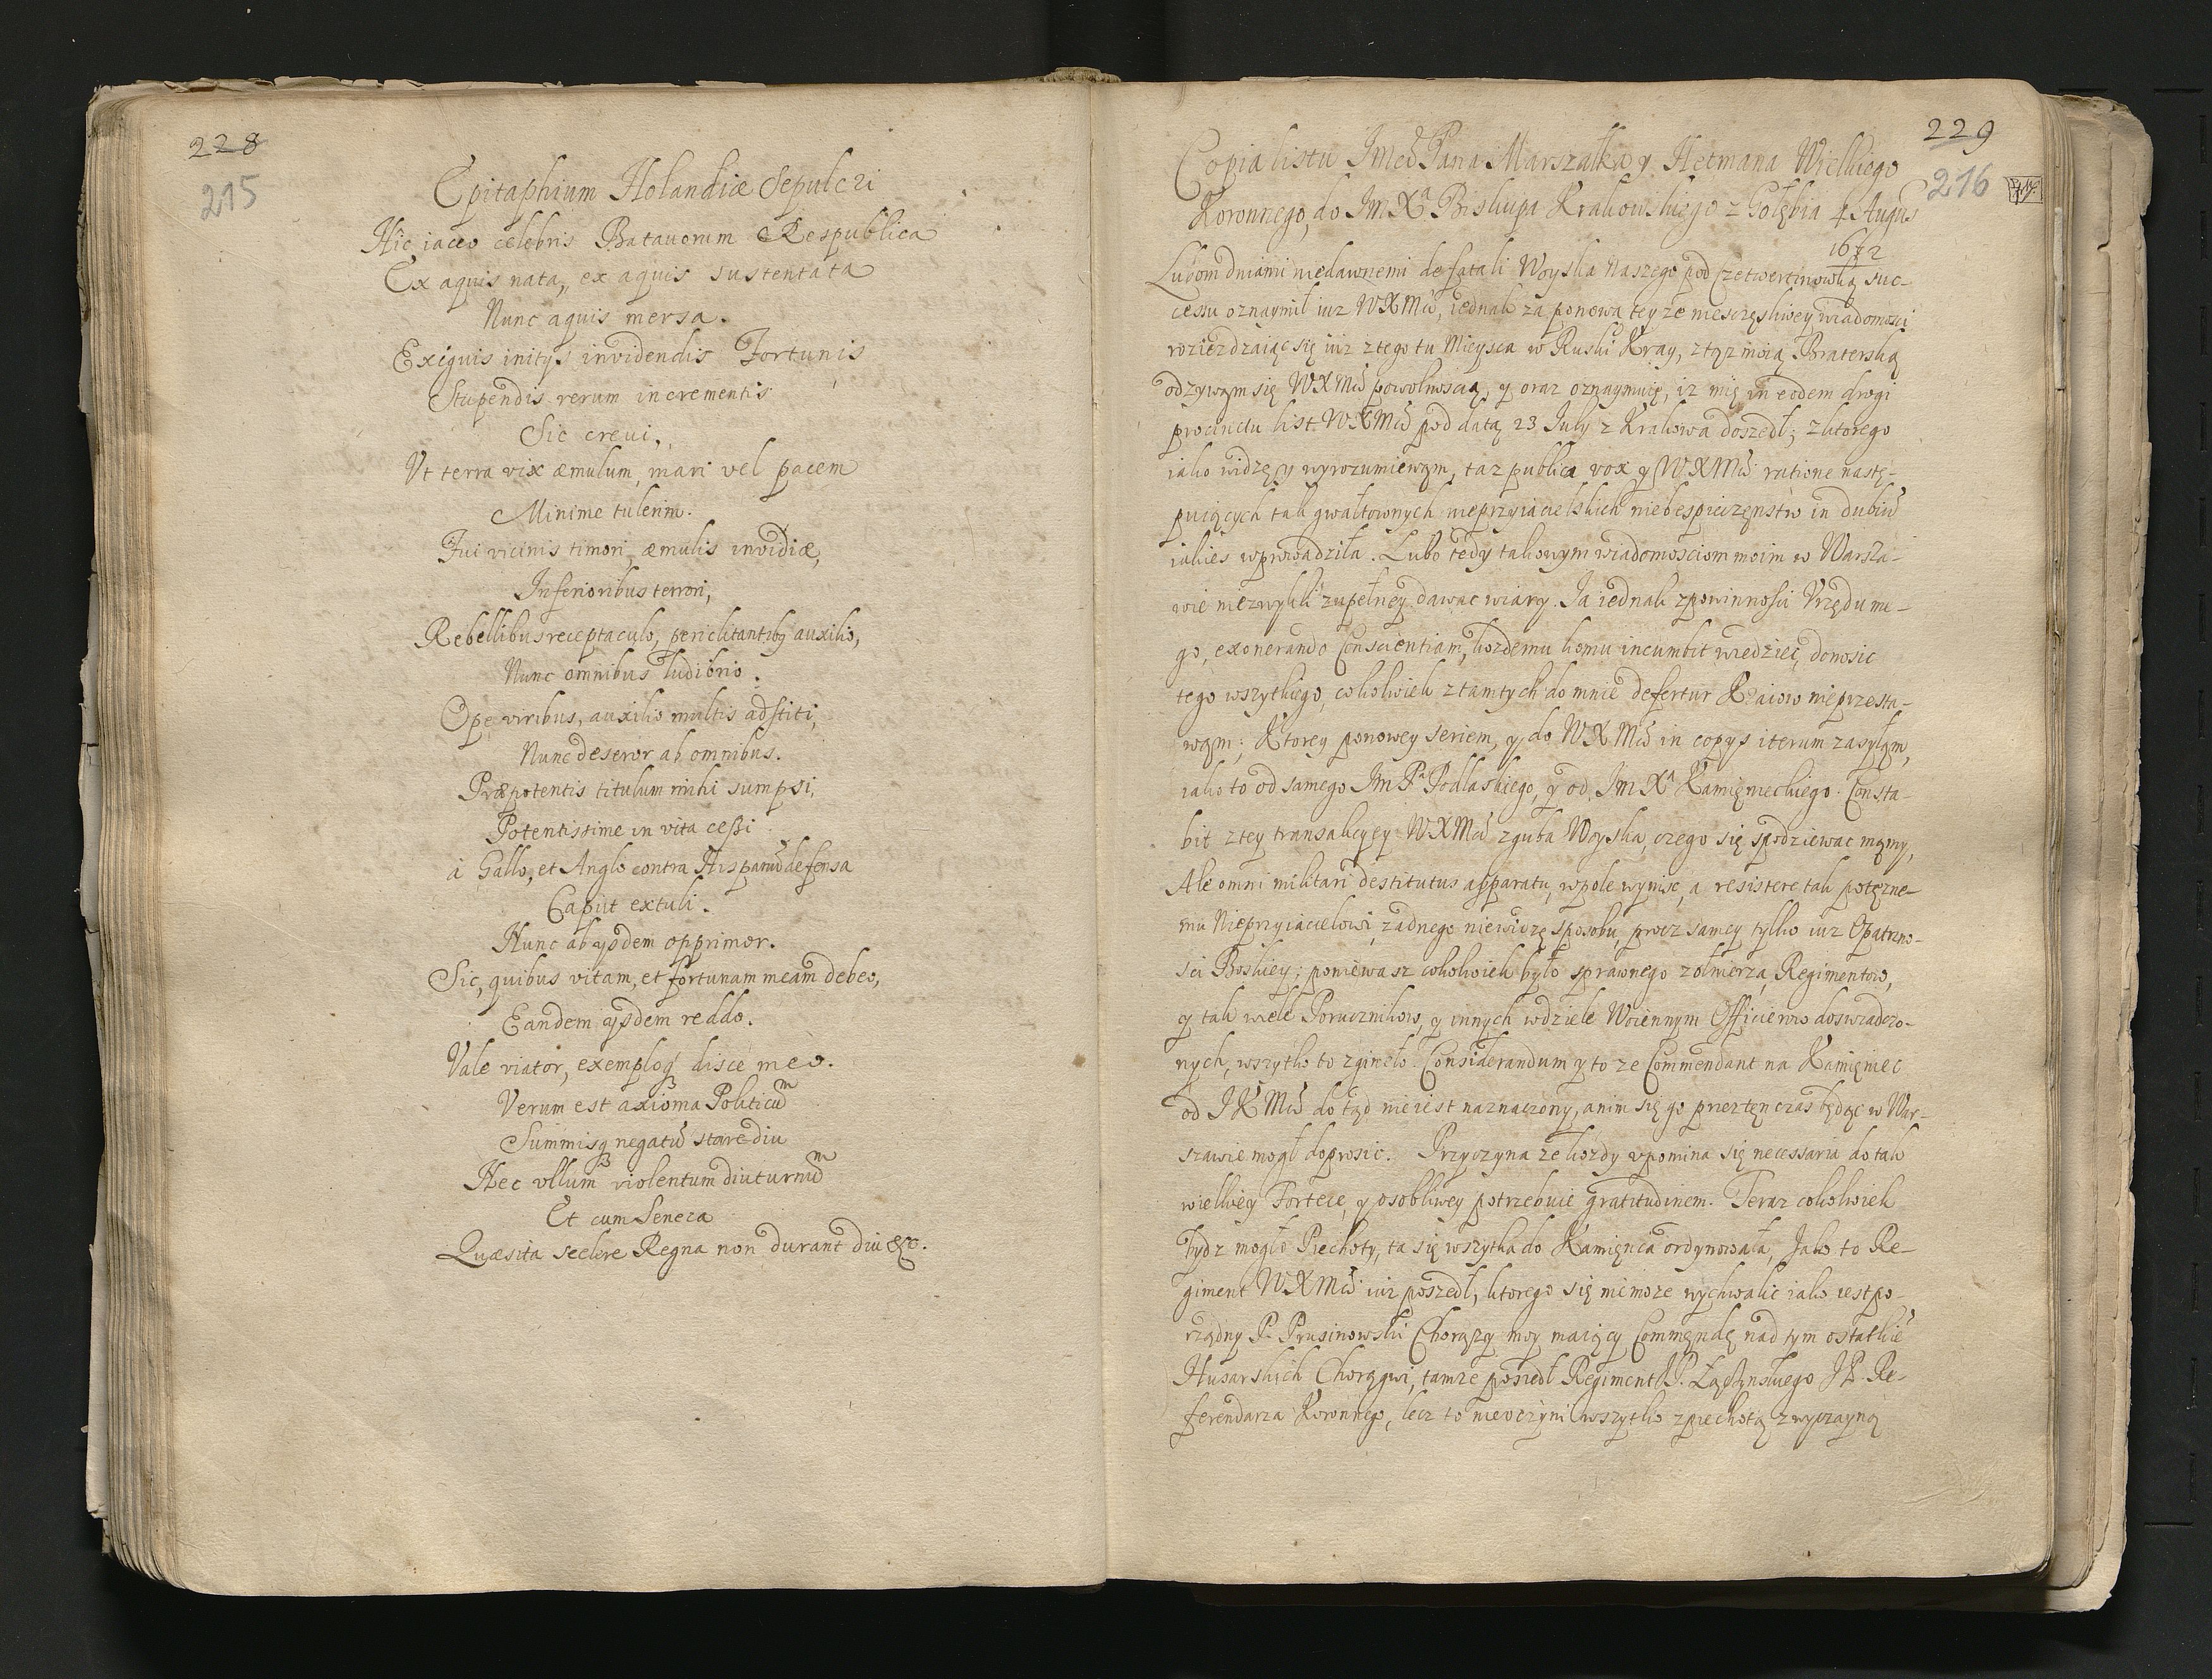 228
215
Epitaphium Holandiæ Sepulcri
Hic iaceo celebris Batauorum Respublica
Ex aquis nata, ex aquis sustentata
Nunc aquis mersa.
Exiguis initys invidendis Fortunis
Stupendis rerum incrementis
Sic creui,
Vt terra vix æmulum, mari vel pacem
Minime tulerim.
Fui vicinis timori, æmulis invidiæ,
Inferioribus terrori,
Rebellibus receptaculo, periclitantibq auxilio,
Nunc omnibus ludibrio.
Ope viribus, auxilio multis adstiti,
Nunc deseror ab omnibus.
Præpotentis titulum mihi sumpsi,
Potentissime in vita cessi
à Gallo, et Anglo contra Hispanũ defensa
Caput extuli.
Nunc ab ysdem opprimor.
Sic, quibus vitam, et fortunam meam debeo,
Eandem ysdem reddo.
Vale viator, exemploq disce meo.
Verum est axioma Politicũ
Summisq negatũ stare diu
Nec vllum violentum diuturnũ
Et cum Seneca
Quæsita scelere Regna non durant diu &c.
229
216
Copia listu Jmci Pana Marszałka y Hetmana Wielkiego
Koronnego, do Jm Xa Biskupa Krakowskiego z Gołębia 4 Augus
1672
Lubom dniami niedawnemi de fatali Woyska Naszego pod Czetwertinowką suc-
cessu oznaymił iuz WXMci, iednak za ponowa teyze niesczęsliwey wiadomosci
wziezdzaiąc się iuz z tego tu Mieysca w Ruski Kray, z tąz moią Braterską
odzywąm się WXMci powolnoscią, y oraz oznaymuię, iz mię in eodem drogi
procinctu list WXMci pod datą 23 July z Krakowa doszedł; z ktorego
iako widzę y wyrozumiewąm, taz publica vox y WXMci ratione nastę-
puiących tak gwałtownych nieprzyiacielskich niebespieczęnstw in dubiũ
iakies wprowadziła. Lubo tedy takowym wiadomosciom moim w Warsza-
wie niezwykli zupełney dawac wiary. Ja iednak z powinnosci Vrzędu me-
go, exonerando Conscientiam, kozdemu komu incumbit wiedziec, donosic
tego wszytkiego, cokolwiek z tamtych do mnie defertur Kraiow nieprzesta-
wąm; Ktorey ponowey seriem, y do WXMci in copys iterum zasyłąm,
iako to od samego Jm Pa Podlaskiego, y od Jm Xa Kamięnieckiego. Consta-
bit z tey transakcyey WXMci zguba Woyska, czego się spodziewac mąmy,
Ale omni militari destitutus apparatu, w pole wynisc, a resistere tak potęzne-
mu Nieprzyiacielowi, zadnego niewidzę sposobu, procz samey tylko iuz Opatrzno-
sci Boskiey; poniewasz cokolwiek było sprawnego zołnierza, Regimentow,
y tak wiele Porucznikow, y innych w dziele Woiennym Officierow doswiadczo-
nych, wszytko to zgineło. Considerandum y to ze Commendant na Kamięniec
od JKMci do tąd nieiest naznaczony, anim się go przez tęn czas będąc w War-
szawie mogł doprosic. Przyczyna ze kozdy vpomina się necessaria do tak
wielkiey Fortece, y osobliwey potrzebuie gratitudinem. Teraz cokolwiek
bydz mogło Piechoty, ta się wszytka do Kamięnca ordynowała, Jako to Re-
giment WXMci iuz poszedł, ktorego się niemoze wychwalic iako iest po-
rządny P. Prusinowski Chorązy moy maiący Commęndę nad tym ostatkiẽ
Husarskich Chorągwi, tamze poszedł Regiment JP. Łączynskiego JP. Re-
ferendarza Koronnego, lecz to nieuczyni wszytko z piechotą zwyczayną